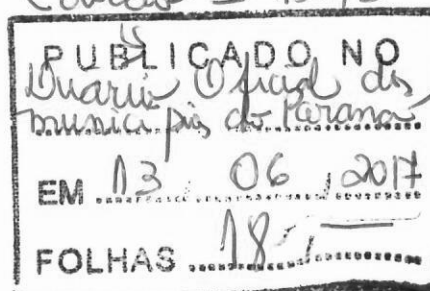 PUBLICADO NO
Diário Oficial dos
municípios do Paraná
EM 13 06 2017
FOLHAS 18